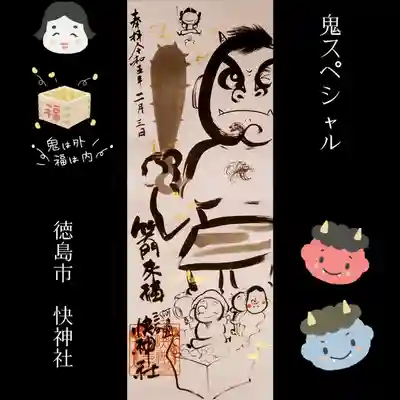 鬼スペシャル
福
鬼は外
福は内
徳島市 快神社
奉拝令和五年二月三日
笑門来福
快神社